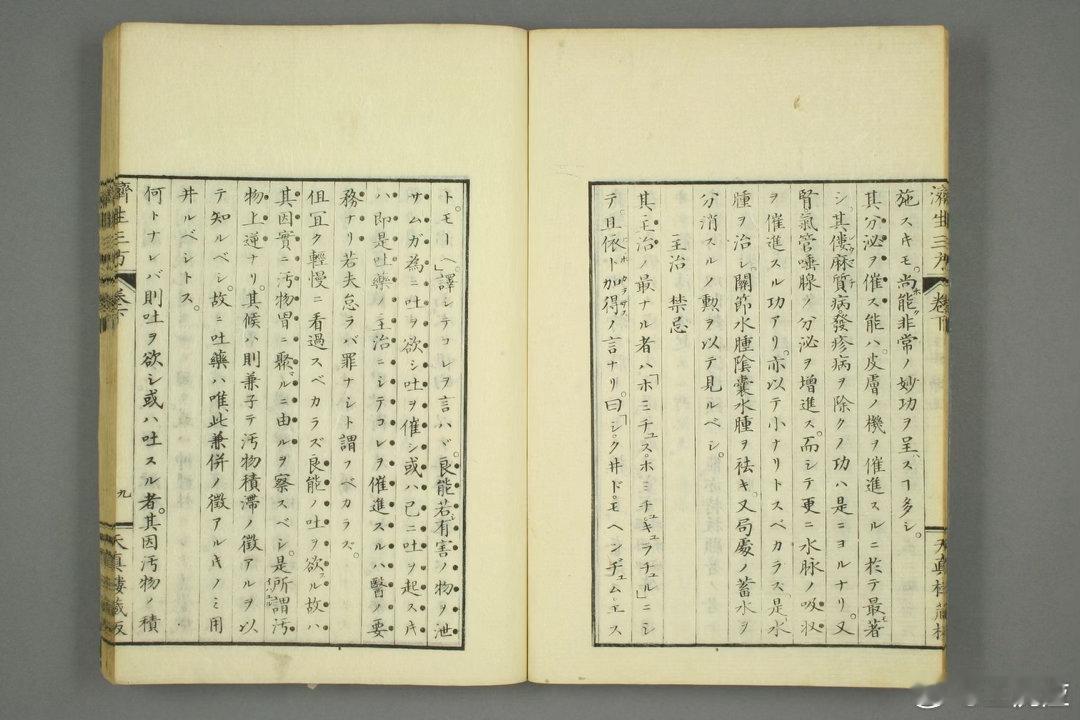 濟生三方
卷下
天真樓藏板
施スキモ。尚能非常ノ妙功ヲ呈スヿ多シ。
其分泌ヲ催ス能ハ。皮膚ノ機ヲ催進スルニ於テ最著
シ。其僂麻質病。發疹病ヲ除クノ功ハ是ニヨルナリ。又
腎。氣管。唾腺ノ分泌ヲ增進ス。而シテ更ニ水脉ノ吸收
ヲ催進スル功アリ。亦以テ小ナリトスベカラス。是水
腫ヲ治シ。關節水腫。陰囊水腫ヲ袪キ。又局處ノ蓄水ヲ
分消スルノ勳ヲ以テ見ルベシ。
主治 禁忌
其主治ノ最ナル者ハ「ホミチュス。ホミチュキュラチュル」ニシ
テ。且依ト加得ノ言ナリ。曰「シク井ドモヘンヂュム。エス
ト。モーヘ」譯シテコレヲ言ハヾ。良能若有害ノ物ヲ泄
サムガ為ニ吐ヲ欲シ吐ヲ催シ或ハ已ニ吐ヲ起スキ
ハ即是吐藥ノ主治ニシテコレヲ催進スルハ醫ノ要
務ナリ若夫怠ラバ罪ナシト謂フベカラズ。
但宜ク輕慢ニ看過スベカラズ良能ノ吐ヲ欲ル故ハ
其因實ニ汚物胃ニ聚ルニ由ルヲ察スベシ。是所謂汚
物上逆ナリ。其候ハ則兼子テ汚物積滯ノ徵アルヲ以
テ知ルベシ。故ニ吐藥ハ唯此兼併ノ徵アルキノミ用
井ルベシトス。
何トナレバ則吐ヲ欲シ或ハ吐スル者。其因汚物ノ積
濟生三方
卷下
九
天真樓藏板